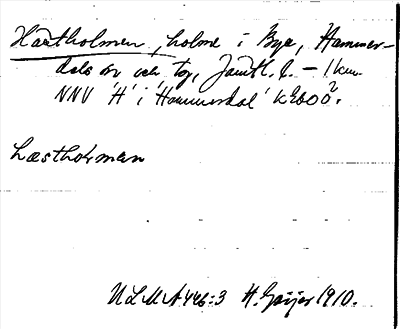 Hästholmen, holme i Bye, Hammer-
dals sn och tg, Jämtl. l. – 1 km.
NNV 'H' i 'Hammerdal' K 2600².
hæsthoɫmɘn
ULMA 446:3 H. Geijer 1910.